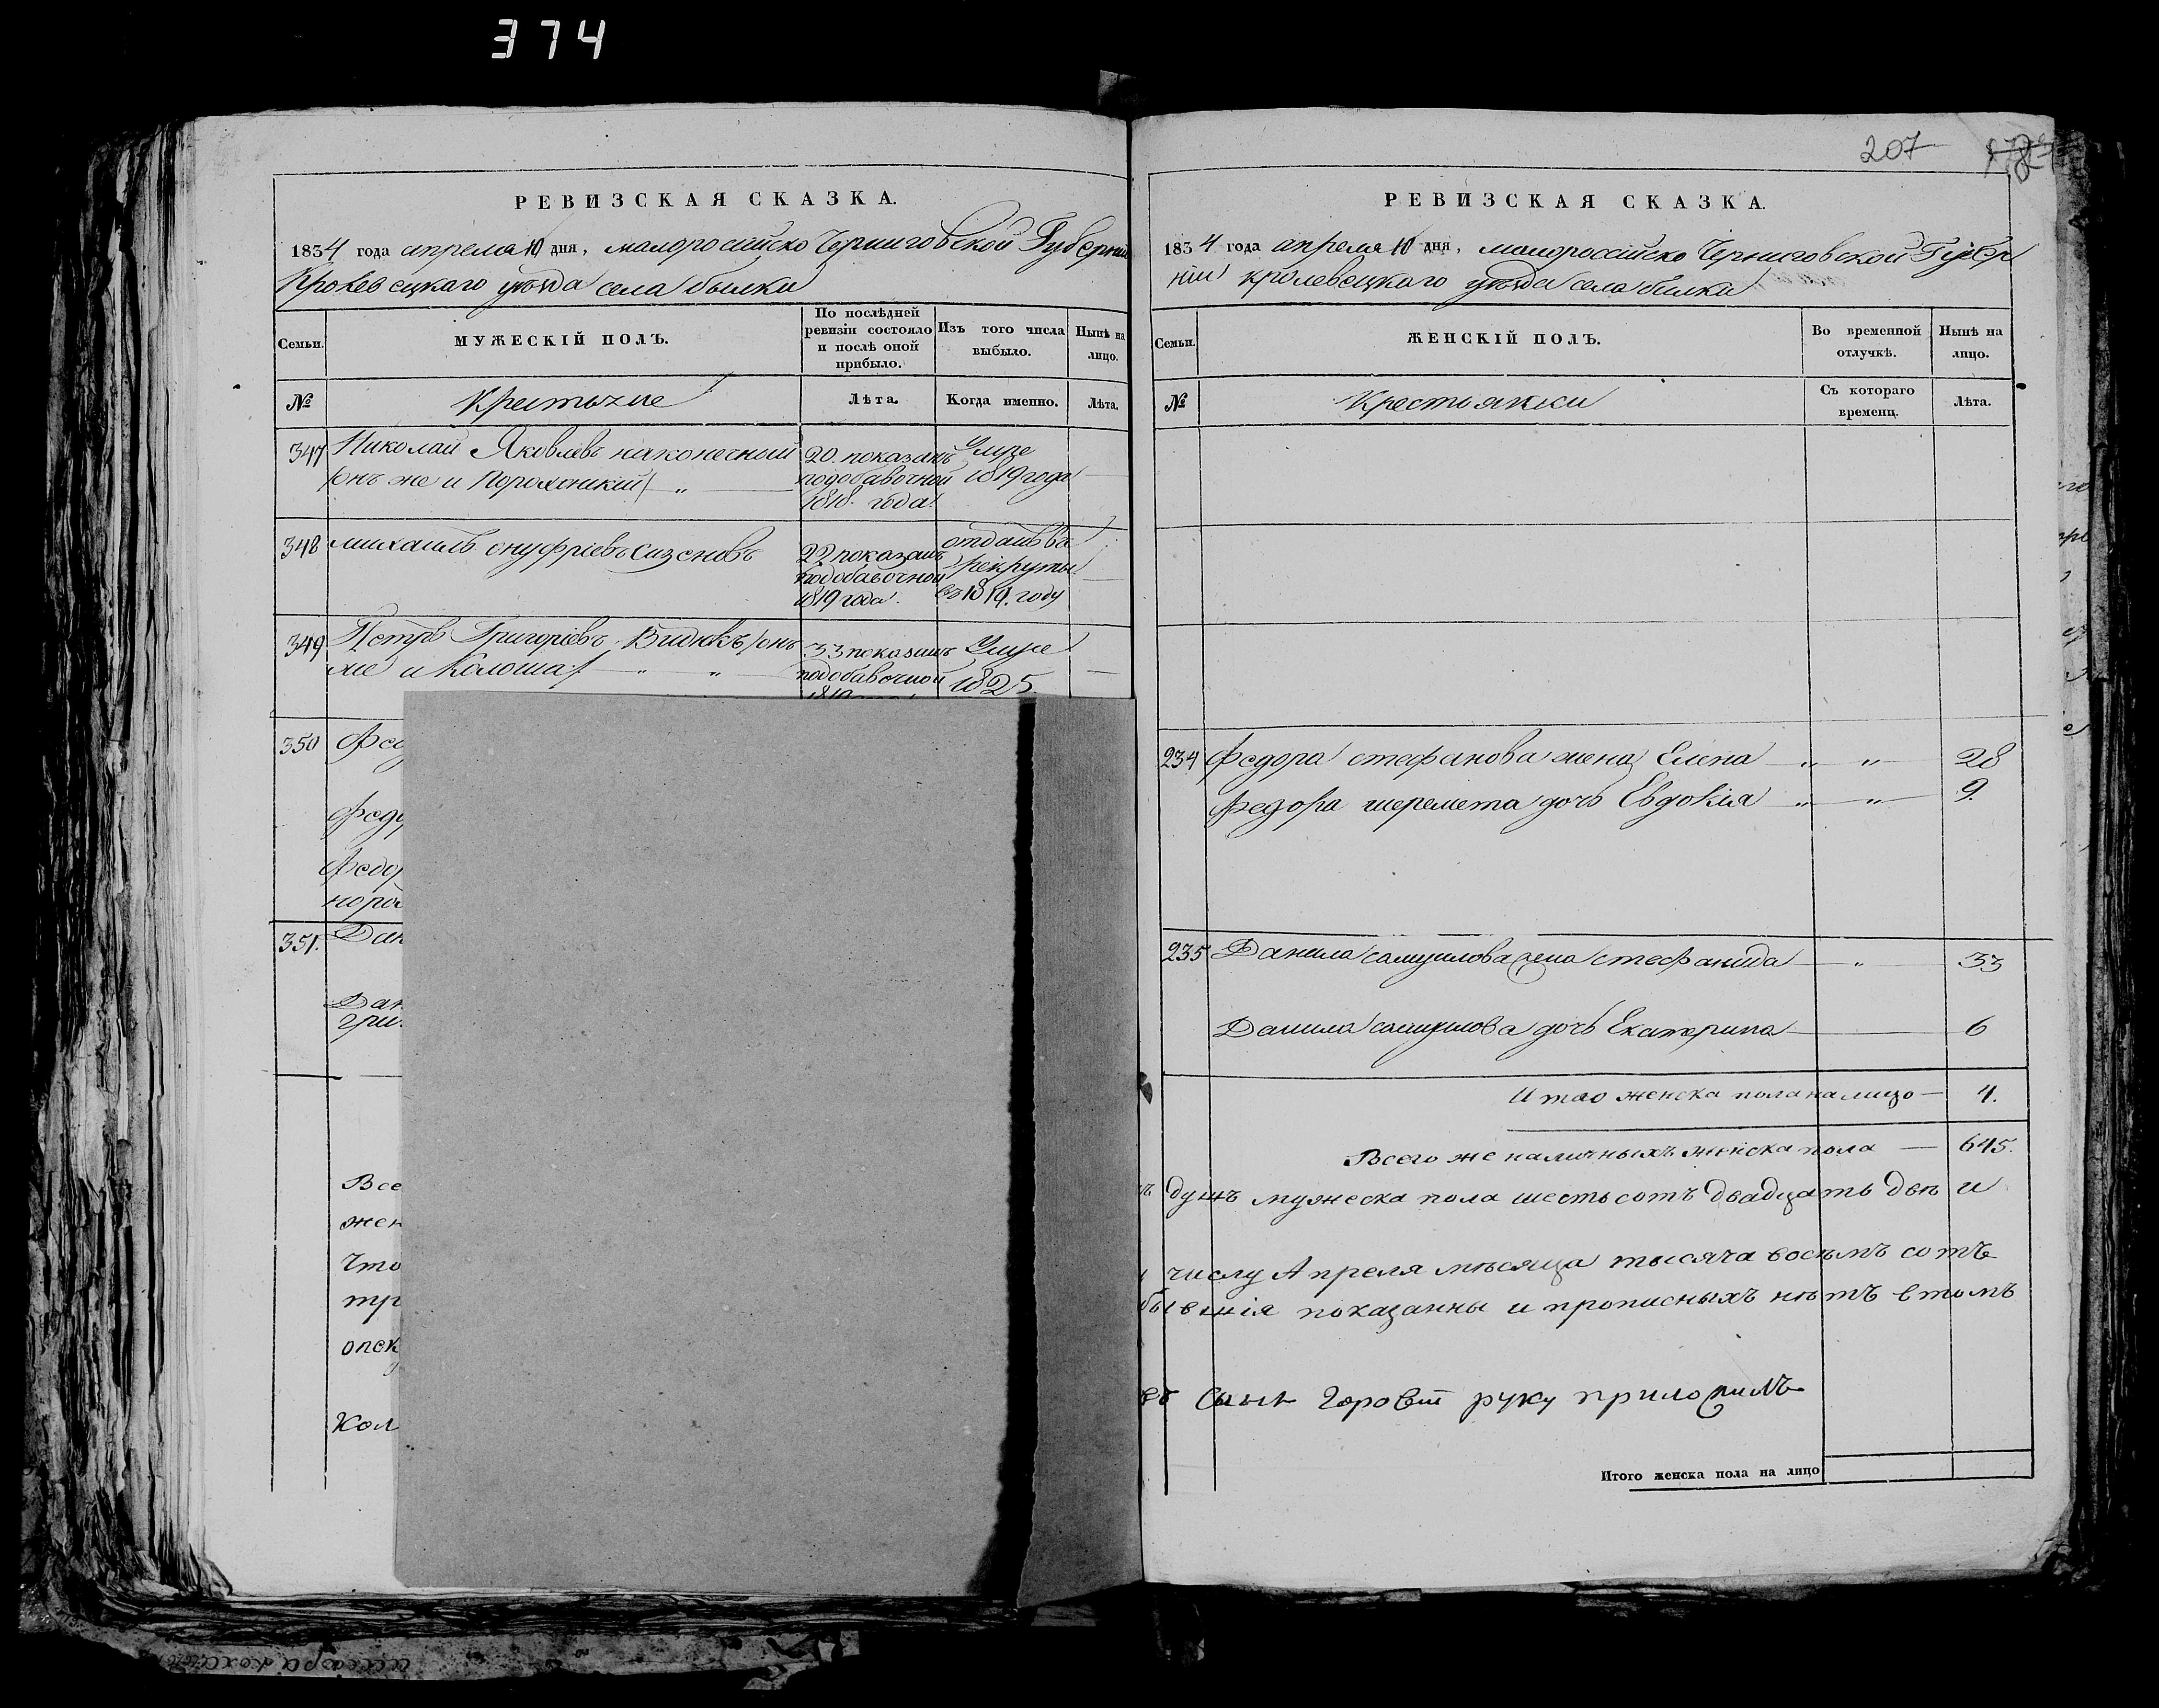 374
РЕВИЗСКАЯ СКАЗКА.
1834 года апреля 10 дня, малоросійско Черниговской Губерніи
Кролевецкаго уѣзда села былки
Семьи.
МУЖЕСКІЙ ПОЛЪ.
По послѣдней ревизіи состояло и послѣ оной прибыло.
Изъ того числа выбыло.
Нынѣ на лицо.
№
Крестьяне
Лѣта.
Когда именно.
Лѣта.
347 Николай Яковлевъ 20. показанъ Умре
/онъ же и / „ — подобавочной 1819 года —
1818. года.
348 михаилъ онуфріевъ 22 показанъ отданъ въ
подобавочной рекруты —
1819 года. въ 1819. году
349 Петръ Григоріевъ /онъ 33 показанъ Умре
же и Колоша / — „ — „ — подобавочной 1825 —
350 Фед
Федо
Федор
норо
351. Дан
Дан
гри
Все
жен
Что
тр
опек
Кол
207
РЕВИЗСКАЯ СКАЗКА.
1834 года апреля 10 дня, малоросійско Черниговской Губер
ніи кролевецкаго уѣзда села билки
Семьи.
ЖЕНСКІЙ ПОЛЪ.
Во временной отлучкѣ.
Нынѣ на лицо.
№
Крестьянки
Съ котораго времени.
Лѣта.
234 Федора стефанова жена Елена — „ „ — 28
Федора шеремета дочь Евдокія „ — „ — 9.
235 Данила самуилова жена стефанида — „ — 33
Данила самуилова дочь Екатерина — 6
Итого женска пола на лицо — 4.
Всего же наличныхъ женска пола — 645.
душъ мужеска пола шестьсотъ двадцать двѣ и
числу Апреля мѣсяца тысяча восемъ сотъ
бывшія показанны и прописныхъ нѣтъ втомъ
Сынъ руку приложилъ
Итого женска пола на лицо